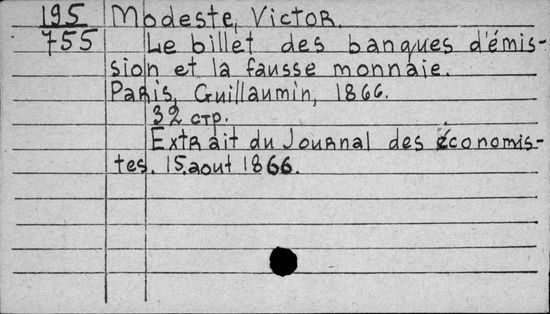 195 Modeste, Victor.
755 Le billet des banques d'émis-
sion et la fausse monnaie.
Paris, Guillaumin, 1866.
32 стр.
Extrait du Journal des économis-
tes. 15 aout 1866.